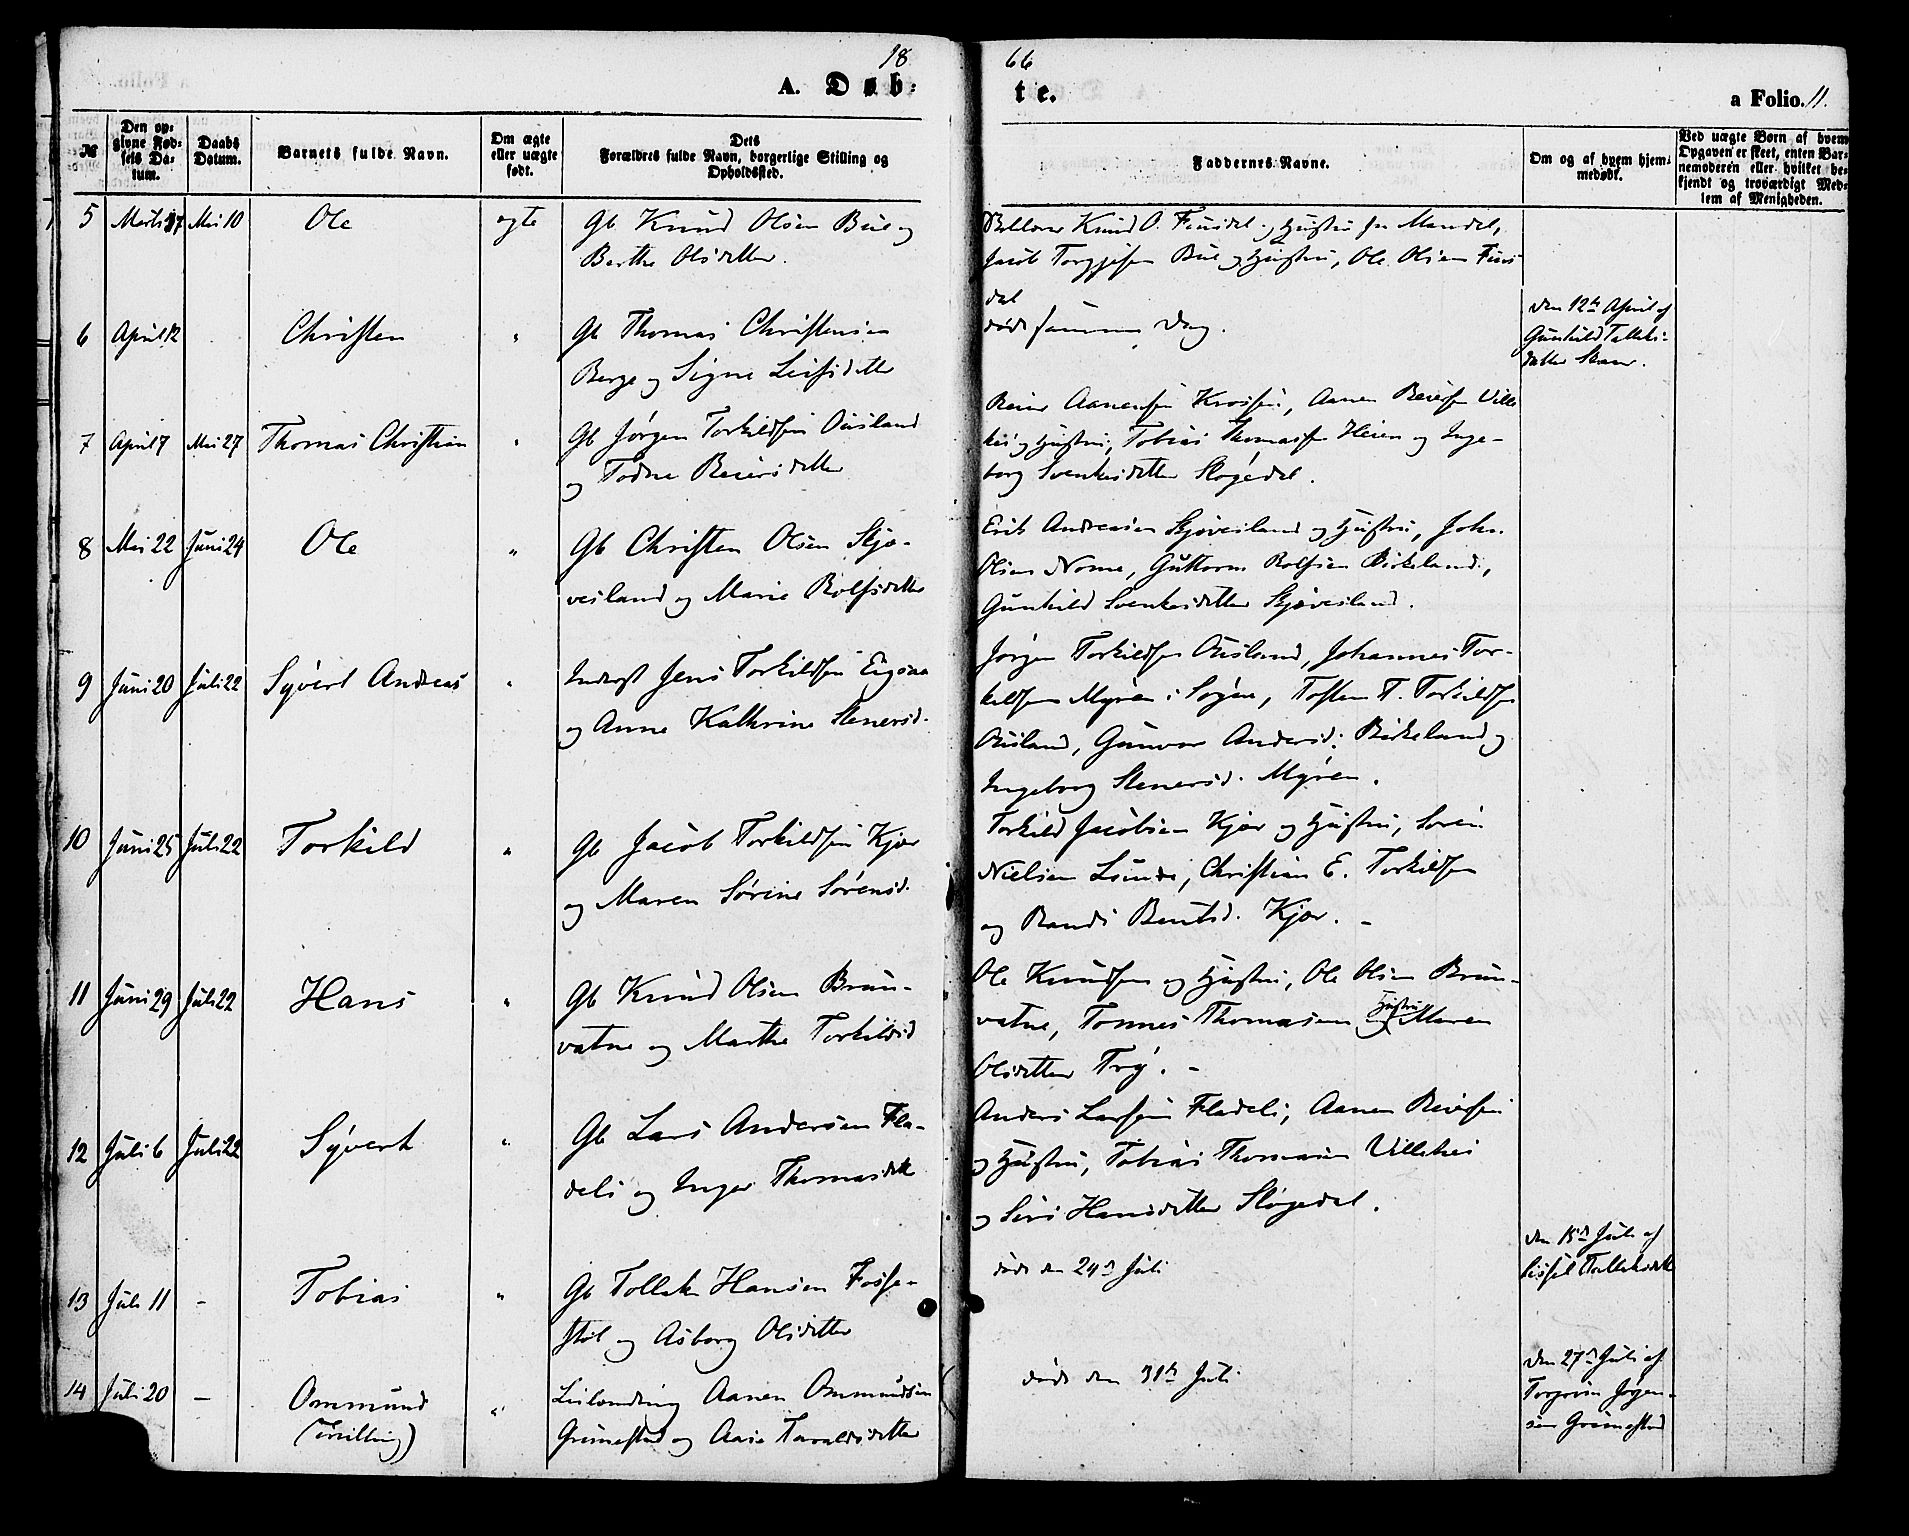 18 66
A. Døb: te.
a Folio. 11.
№
Den op-
givne Fød-
sels Da-
tum.
Daabs
Datum.
Barnets fulde Navn.
Om ægte
eller uægte
født.
Dets
Forældres fulde Navn, borgerlige Stilling og
Opholdssted.
Faddernes Navne.
Om og af hvem hjem-
medøbt.
Ved uægte Børn af hvem
Opgaven er skeet, enten Bar-
nemoderen eller hvilket be-
kjendt og troværdigt Med-
lem af Menigheden.
5 Mai 10 Ole ægte Gb Knud Olsen Bue og
Berthe Olsdatter.
Knud O. Fuusdal og Hustru fra Mandal,
Jacob Torgjesen Bue og Hustru, Ole Olsen Fuus
dal
6 April 12 Christen " Gb Thomas Christensen
Berge og Signe Leifsdatter
døde samme Dag.
den 12te April af
Gunhild Talleks-
datter
7 April 7 Mai 27 Thomas Christian " Gb Jørgen Torkildsen Ousland
og Todne Reiersdatter
Reier Aanensen Krossen, Aanen Reiersen Ville
kei og Hustru, Tobias Thomassen Heien og Inge-
borg Svenkesdatter Sløgedal.
8 Mai 22 Juni 24 Ole " Gb Christen Olsen Skjø-
veiland og Marie Rolfsdatter
Erik Andreasen Skjøveiland og Hustru, John
Olsen Nome, Guttorm Rolfsen Birkeland,
Gunhild Svenkesdatter Skjøveiland.
9 Juni 20 Juli 22 Syvert Andreas " Inderst Jens Torkildsen Eigsaa
og Anne Kathrine Stenersd.
Jørgen Torkildsen Ousland, Johannes Tor-
kildsen Myren i Søgne, Tosten T. Torkildsen
Ousland, Gunvor Andersd. Birkeland og
Ingeborg Stenersd. Myren.
10 Juni 25 Juli 22 Torkild " Gb Jacob Torkildsen Kjær
og Maren Sørine Sørensd.
Torkild Jacobsen Kjær og Hustru, Søren
Nielsen Lunde, Christian E. Torkildsen
og Randi Bentsd. Kjær. -
11 Juni 29 Juli 22 Hans " Gb Knud Olsen Brun-
vatne og Marthe Torkildsd
Ole Knudsen og Hustru, Ole Olsen Brun-
vatne, Tønnes Thomasen og Hustru Maren
Olsdatter Try. -
12 Juli 6 Juli 22 Syvert " Gb Lars Andersen Fla-
deli og Inger Thomasdatt
Anders Larsen Fladeli, Aanen Reiersen
og Hustru, Tobias Thomasen Villekei
og Siri Hansdatter Sløgedal.
13 Juli 11 - Tobias " Gb Tollak Hansen Fosse-
støl og Asborg Olsdatter
døde den 24de Juli
den 15de Juli af
Sissel Tallaksdatt
14 Juli 20 - Ommund
(Tvilling) " Leilænding Aanen Ommundsen
Grimestad og Aase Taraldsdatter
døde den 31te Juli
den 27de Juli af
Torgrim Jørgen-
sen Grimestad